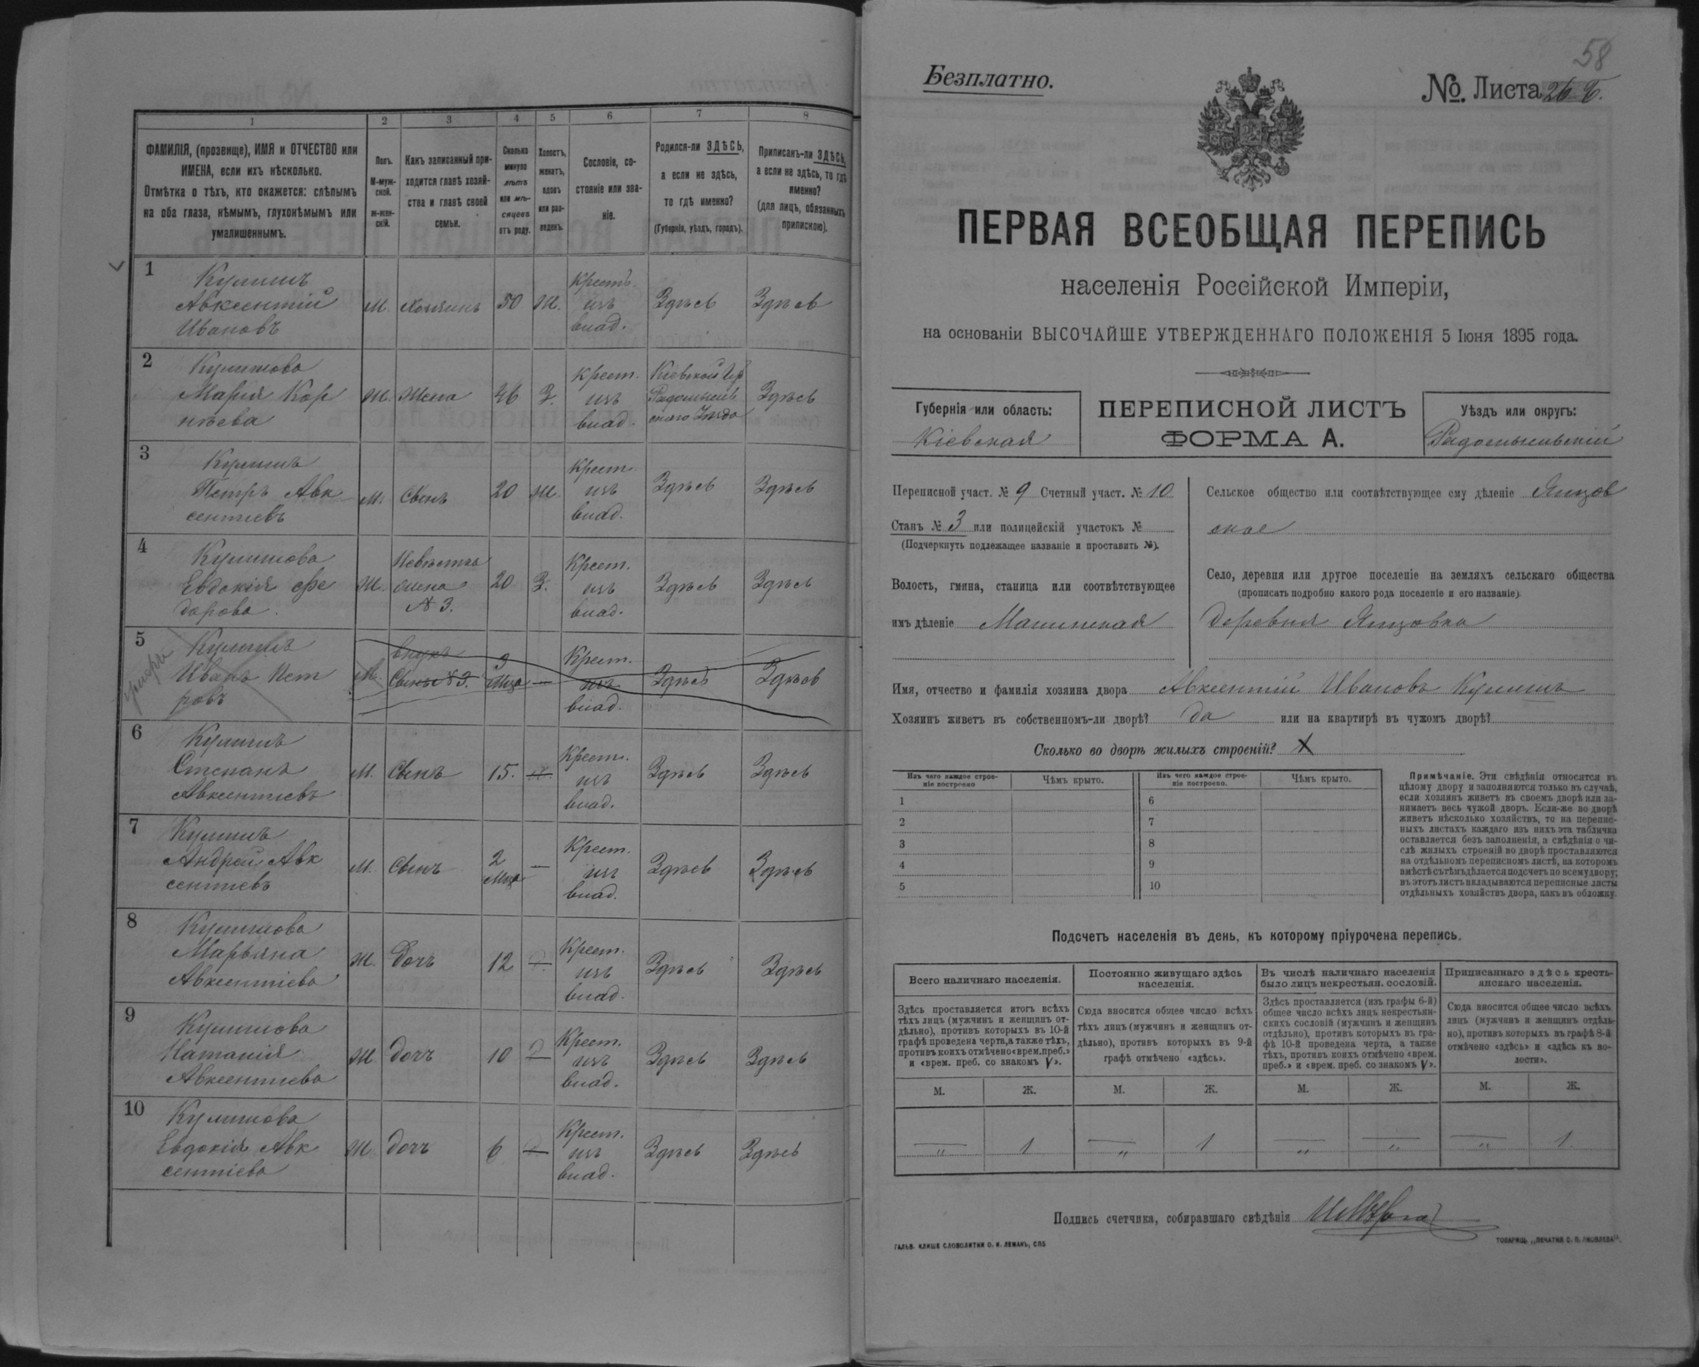 1
2
3
4
5
6
7
8
ФАМИЛІЯ, (прозвище), ИМЯ и ОТЧЕСТВО или
ИМЕНА, если ихъ нѣсколько.
Отмѣтка о тѣхъ, кто окажется: слѣпымъ
на оба глаза, нѣмымъ, глухонѣмымъ или
умалишеннымъ.
Полъ.
М-муж-
ской.
ж-жен-
скій.
Какъ записанный при-
ходится главѣ хозяй-
ства и главѣ своей
семьи.
Сколько
минуло
лѣтъ
или мѣ-
сяцевъ
отъ роду.
Холостъ,
женатъ,
вдовъ
или раз-
веденъ.
Сословіе, со-
стояніе или зва-
ніе.
Родился-ли ЗДѢСЬ,
а если не здѣсь,
то гдѣ именно?
(Губернія, уѣздъ, городъ).
Приписанъ-ли ЗДѢСЬ,
а если не здѣсь, то гдѣ
именно?
(для лицъ, обязанныхъ
припискою).
1
Авксентій
Ивановъ
М. Хозяинъ 50 Ж.
Крест.
изъ
влад.
Здѣсь Здѣсь
2
Марія Кор
нѣева
Ж. Жена 46 З.
Крест.
изъ
влад.
Кіевской Губ
Здѣсь
3
Петръ Авк
сентіевъ
М. Сынъ 20 Ж.
Крест.
изъ
влад.
Здѣсь Здѣсь
4
Евдокія Фе
дорова.
Ж.
Невѣстка
жена
№ 3.
20 З.
Крест.
изъ
влад.
Здѣсь Здѣсь
5
Иванъ Пет
ровъ
М.
внукъ
Сынъ № 3.
9
Крест.
изъ
влад.
Здѣсь Здѣсь
6
Степанъ
Авксентіевъ
М. Сынъ 15.
Крест.
изъ
влад.
Здѣсь Здѣсь
7
Андрей Авк
сентіевъ
М. Сынъ 2
Крест.
изъ
влад.
Здѣсь Здѣсь
8
Марьяна
Авксентіева
Ж. Дочь 12
Крест.
изъ
влад.
Здѣсь Здѣсь
9
Наталія
Авксентіева
Ж Дочь 10
Крест.
изъ
влад.
Здѣсь Здѣсь
10
Евдокія Авк
сентіева
Ж Дочь 6
Крест.
изъ
влад.
Здѣсь Здѣсь
58
Безплатно.
№. Листа
ПЕРВАЯ ВСЕОБЩАЯ ПЕРЕПИСЬ
населенія Россійской Имперіи,
на основаніи ВЫСОЧАЙШЕ УТВЕРЖДЕННАГО ПОЛОЖЕНІЯ 5 Іюня 1895 года.
Губернія или область:
Кіевская
ПЕРЕПИСНОЙ ЛИСТЪ
ФОРМА А.
Уѣздъ или округъ:
Радомысльскій
Переписной участ. № 9 Счетный участ. № 10
Станъ № 3 или полицейскій участокъ №
(Подчеркнуть подлежащее названіе и проставить №).
Волость, гмина, станица или соотвѣтствующее
имъ дѣленіе Малинская
Сельское общество или соотвѣтствующее ему дѣленіе Янцов
ское
Село, деревня или другое поселеніе на земляхъ сельскаго общества
(прописать подробно какого рода поселеніе и его названіе).
Деревня Янцовка
Имя, отчество и фамилія хозяина двора Авксентій Ивановъ
Хозяинъ живетъ въ собственномъ-ли дворѣ? да или на квартирѣ въ чужомъ дворѣ?
Сколько во дворѣ жилыхъ строеній? X
Изъ чего каждое строе-
ніе построено
Чѣмъ крыто.
Изъ чего каждое строе-
ніе построено.
Чѣмъ крыто.
1
2
3
4
5
6
7
8
9
10
Примѣчаніе. Эти свѣдѣнія относятся къ
цѣлому двору и заполняются только въ случаѣ,
если хозяинъ живетъ въ своемъ дворѣ или за-
нимаетъ весь чужой дворъ. Если-же во дворѣ
живетъ нѣсколько хозяйствъ, то на перепис-
ныхъ листахъ каждаго изъ нихъ эта табличка
оставляется безъ заполненія, а свѣдѣнія о чи-
слѣ жилыхъ строеній во дворѣ проставляются
на отдѣльномъ переписномъ листѣ, на которомъ
вмѣстѣ съ тѣмъ дѣлается подсчетъ по всему двору;
въ этотъ листъ вкладываются переписные листы
отдѣльныхъ хозяйствъ двора, какъ въ обложку.
Подсчетъ населенія въ день, къ которому пріурочена перепись.
Всего наличнаго населенія.
Здѣсь проставляется итогъ всѣхъ
тѣхъ лицъ (мужчинъ и женщинъ от-
дѣльно), противъ которыхъ въ 10-й
графѣ проведена черта, а также тѣхъ,
противъ коихъ отмѣчено «врем. преб.»
и «врем. преб. со знакомъ V».
Постоянно живущаго здѣсь
населенія.
Сюда вносится общее число всѣхъ
тѣхъ лицъ (мужчинъ и женщинъ от-
дѣльно), противъ которыхъ въ 9-й
графѣ отмѣчено «здѣсь».
Въ числѣ наличнаго населенія
было лицъ некрестьян. сословій.
Здѣсь проставляется (изъ графы 6-й)
общее число всѣхъ лицъ некрестьян-
скихъ сословій (мужчинъ и женщинъ
отдѣльно), противъ которыхъ въ гра-
фѣ 10-й проведена черта, а также
тѣхъ, противъ коихъ отмѣчено «врем.
преб.» и «врем. преб. со знакомъ V».
Приписаннаго здѣсь кресть-
янскаго населенія.
Сюда вносится общее число всѣхъ
лицъ (мужчинъ и женщинъ отдѣль-
но), противъ которыхъ въ графѣ 8-й
отмѣчено «здѣсь» и «здѣсь къ во-
лости».
М. Ж. М. Ж. М. Ж. М. Ж.
— „ 1 — „ 1 — „ — „ — „ 1
Подпись счетчика, собиравшаго свѣдѣнія
ГАЛЬВ. КЛИШЕ СЛОВОЛИТНИ О. И. ЛЕМАНЪ, СПБ
ТОВАРИЩ. „ПЕЧАТНЯ С. П. ЯКОВЛЕВА".